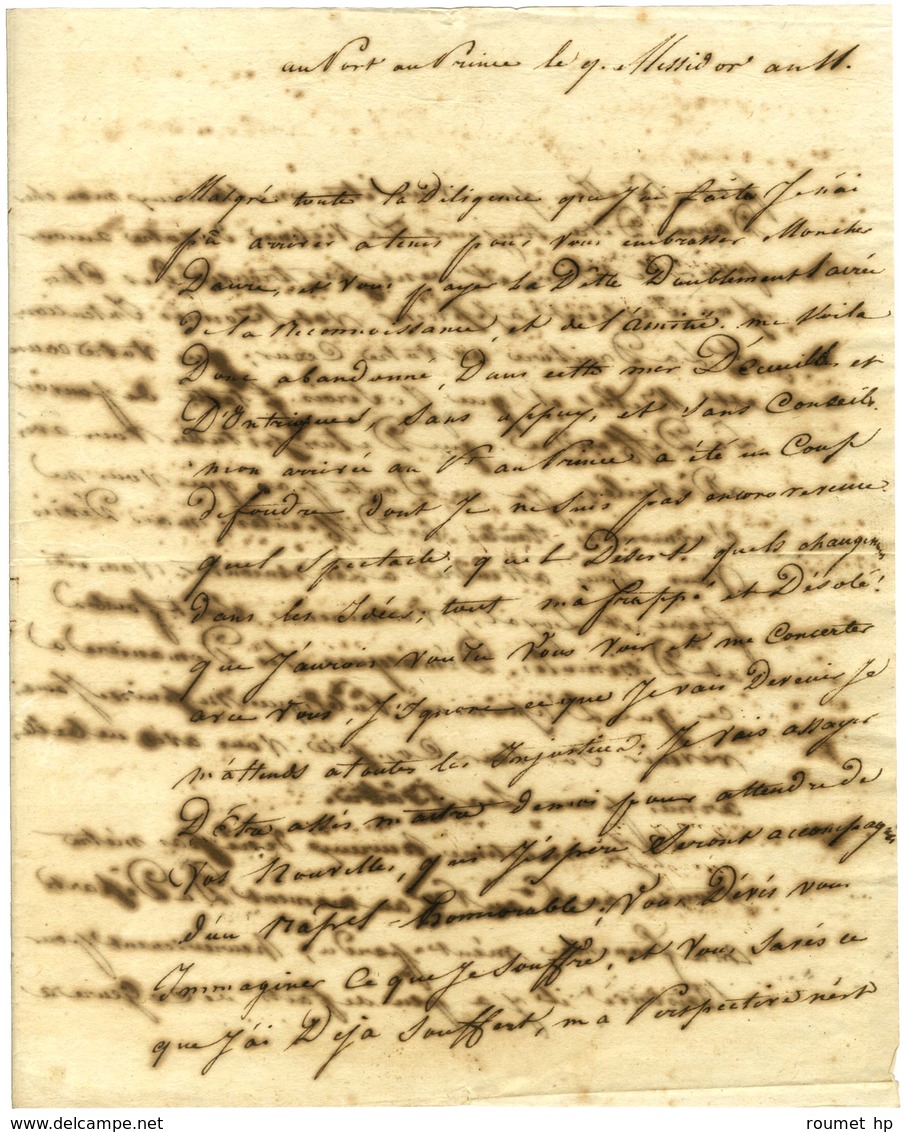 au Port au Prince le 9. Messidor an 11.
Malgré toute la Diligence que J'ai faite Je n'ai
pû arriver atems pour vous embrasser Moncher
Daure, et vous payer la Dette Doublement Sacrée
de la Reconnoissance, et de l'Amitié. me voila
Donc abandonné, Dans cette mer D'Ecueills et
D'Intrigues, sans appuy, et sans Conseils.
mon arrivée au Pt auPrince a été un Coup
defoudre dont Je ne suis pas encore revenu.
quel spectacle, quel Désert. quels changemens
dans les Idées, tout m'a frappé et Désolé!
que J'aurois voulu vous voir et me Concerter
avec vous, J'Ignore ce que Je vais Devenir, Je
m'attends atoutes les Injustices. Je vais assayer
D'Etre assés maitre demoi pour attendre de
Vos Nouvelles, qui J'espère Seront accompagnées
d'un Rapel honnorable. Vous Devés vous
Immaginer ce que Je souffre, et Vous savés ce
que J'ai Déja souffert, ma Perspective n'est
roumet hp